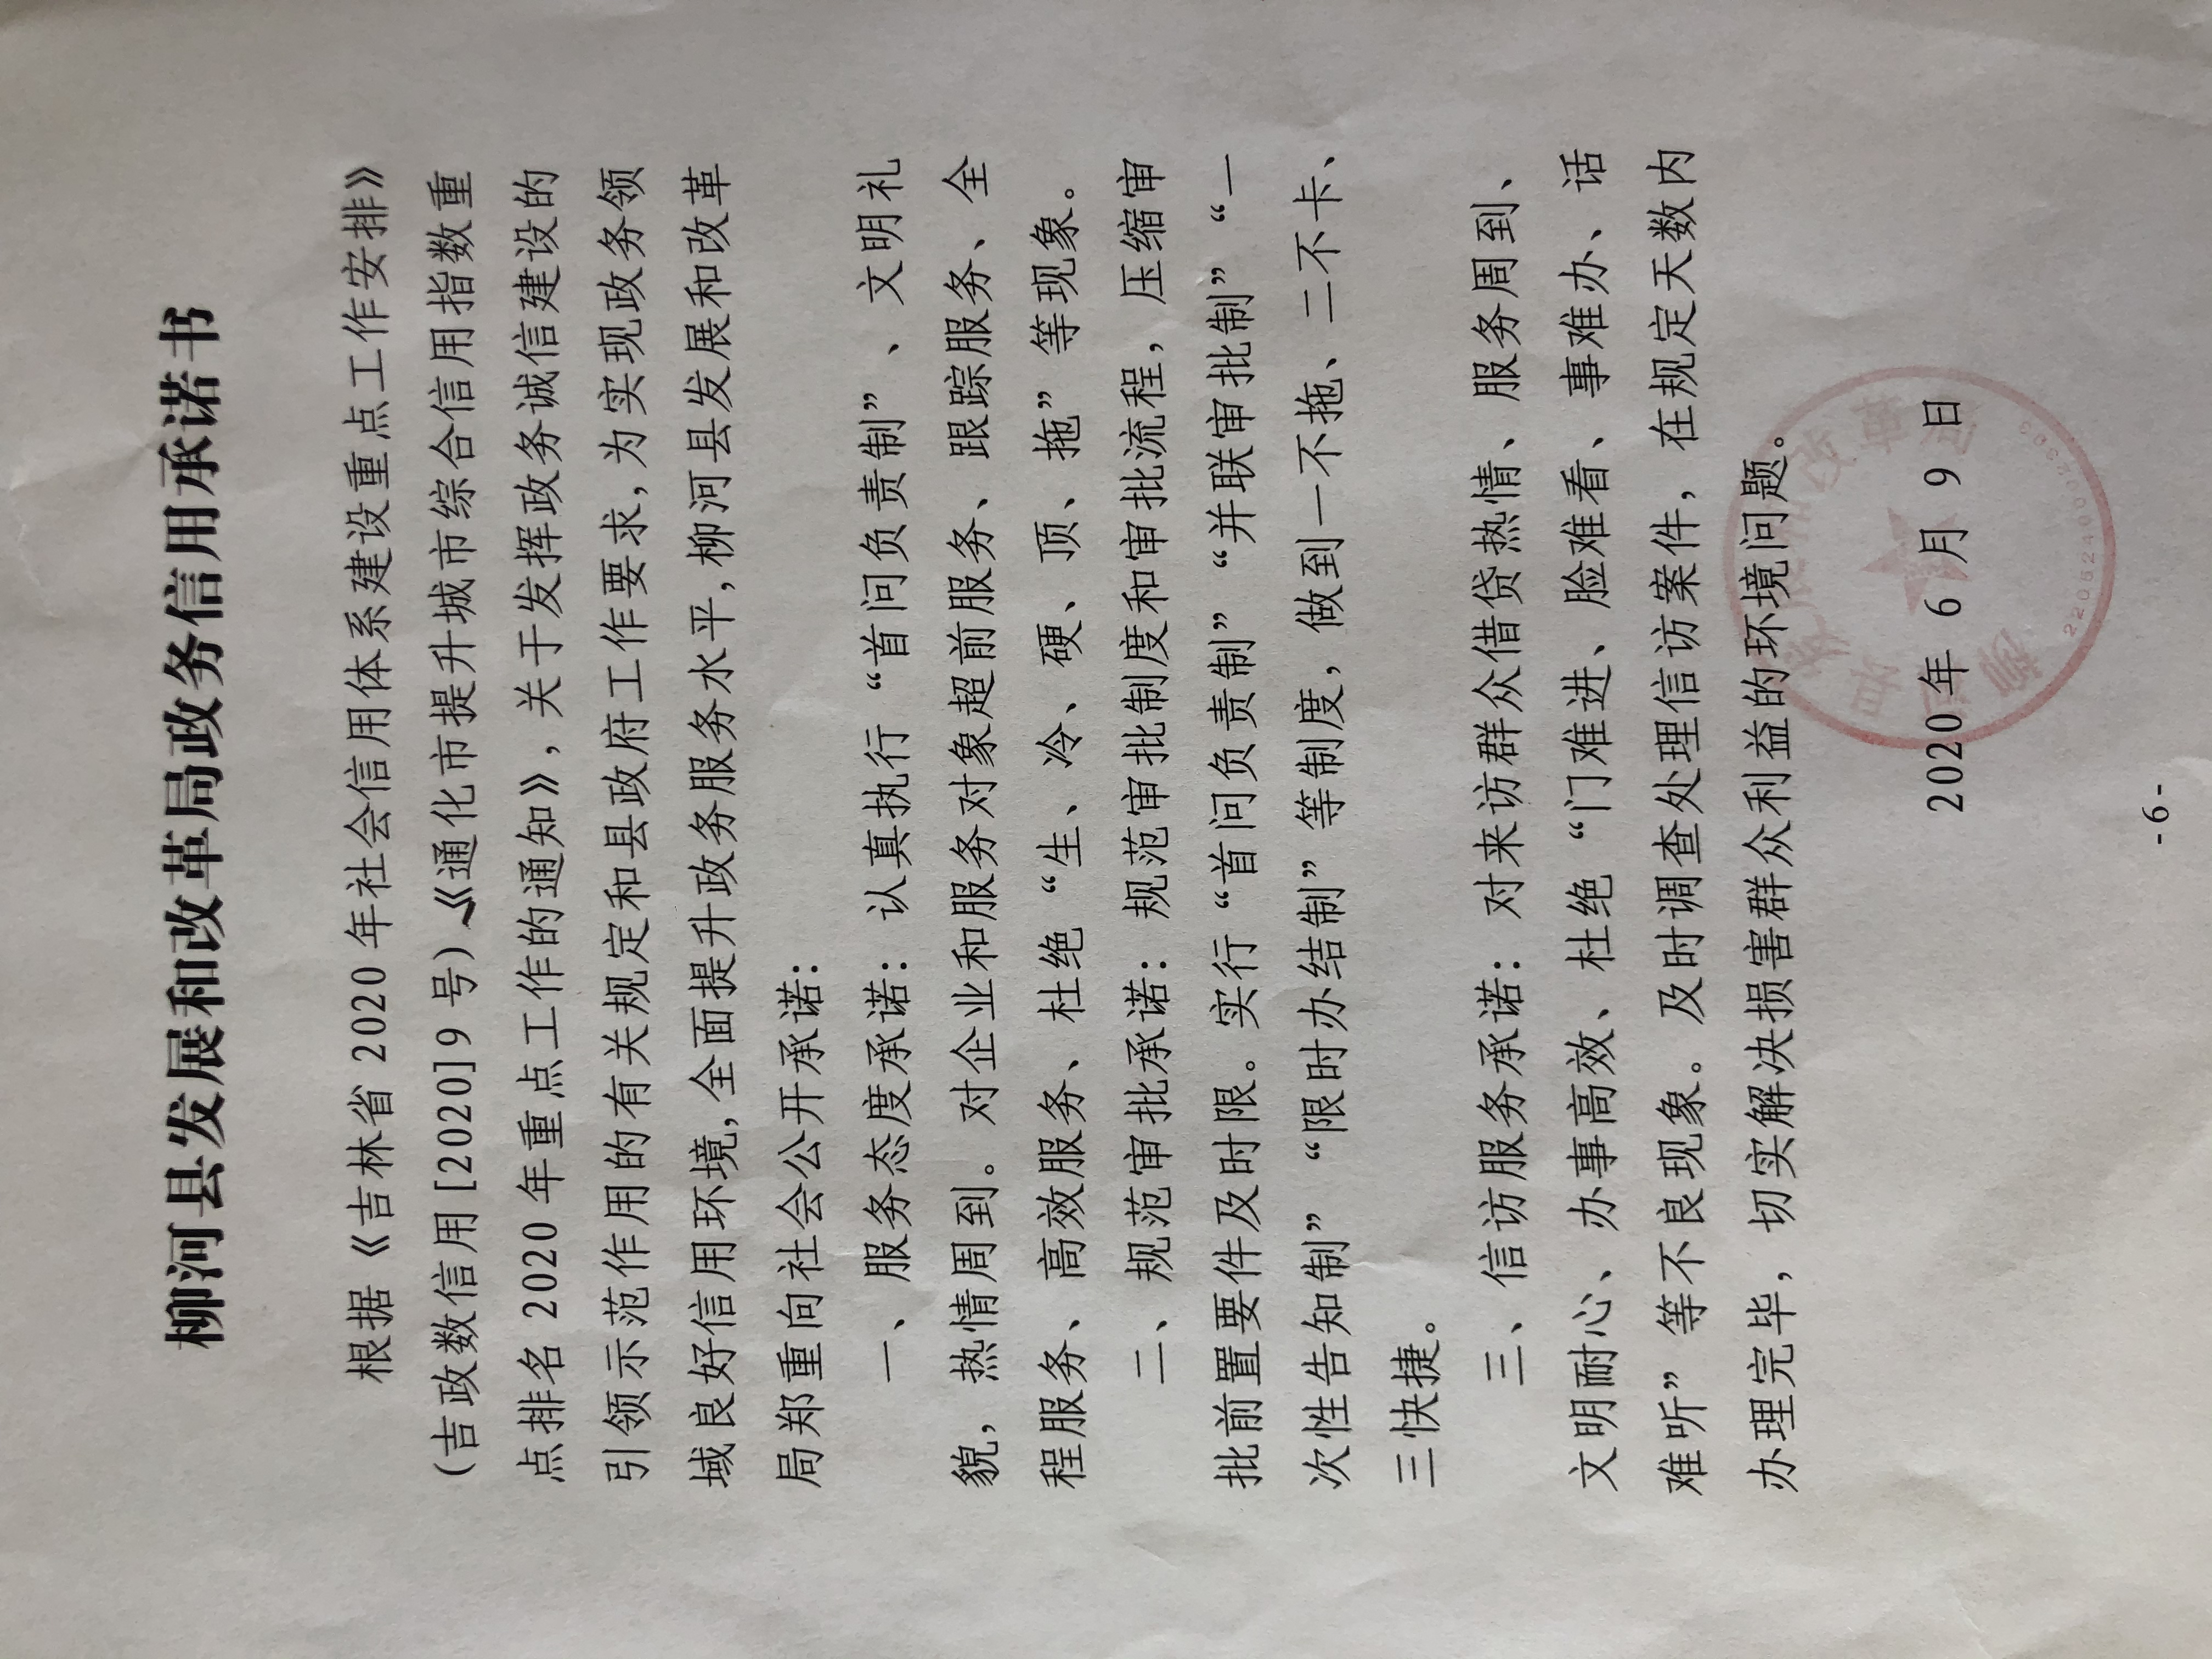 柳河县发展和改革局政务信用承诺书
根据《吉林省 2020 年社会信用体系建设重点工作安排》
（吉政数信用[2020]9 号）《通化市提升城市综合信用指数重
点排名 2020 年重点工作的通知》，关于发挥政务诚信建设的
引领示范作用的有关规定和县政府工作要求，为实现政务领
域良好信用环境，全面提升政务服务水平，柳河县发展和改革
局郑重向社会公开承诺：
一、服务态度承诺：认真执行“首问负责制”、文明礼
貌，热情周到。对企业和服务对象超前服务、跟踪服务、全
程服务、高效服务、杜绝“生、冷、硬、顶、拖”等现象。
二、规范审批承诺：规范审批制度和审批流程，压缩审
批前置要件及时限。实行“首问负责制”“并联审批制”“一
次性告知制”“限时办结制”等制度，做到一不拖、二不卡、
三快捷。
三、信访服务承诺：对来访群众借贷热情、服务周到、
文明耐心、办事高效、杜绝“门难进、脸难看、事难办、话
难听”等不良现象。及时调查处理信访案件，在规定天数内
办理完毕，切实解决损害群众利益的环境问题。
2020 年 6 月 9 日
-6-